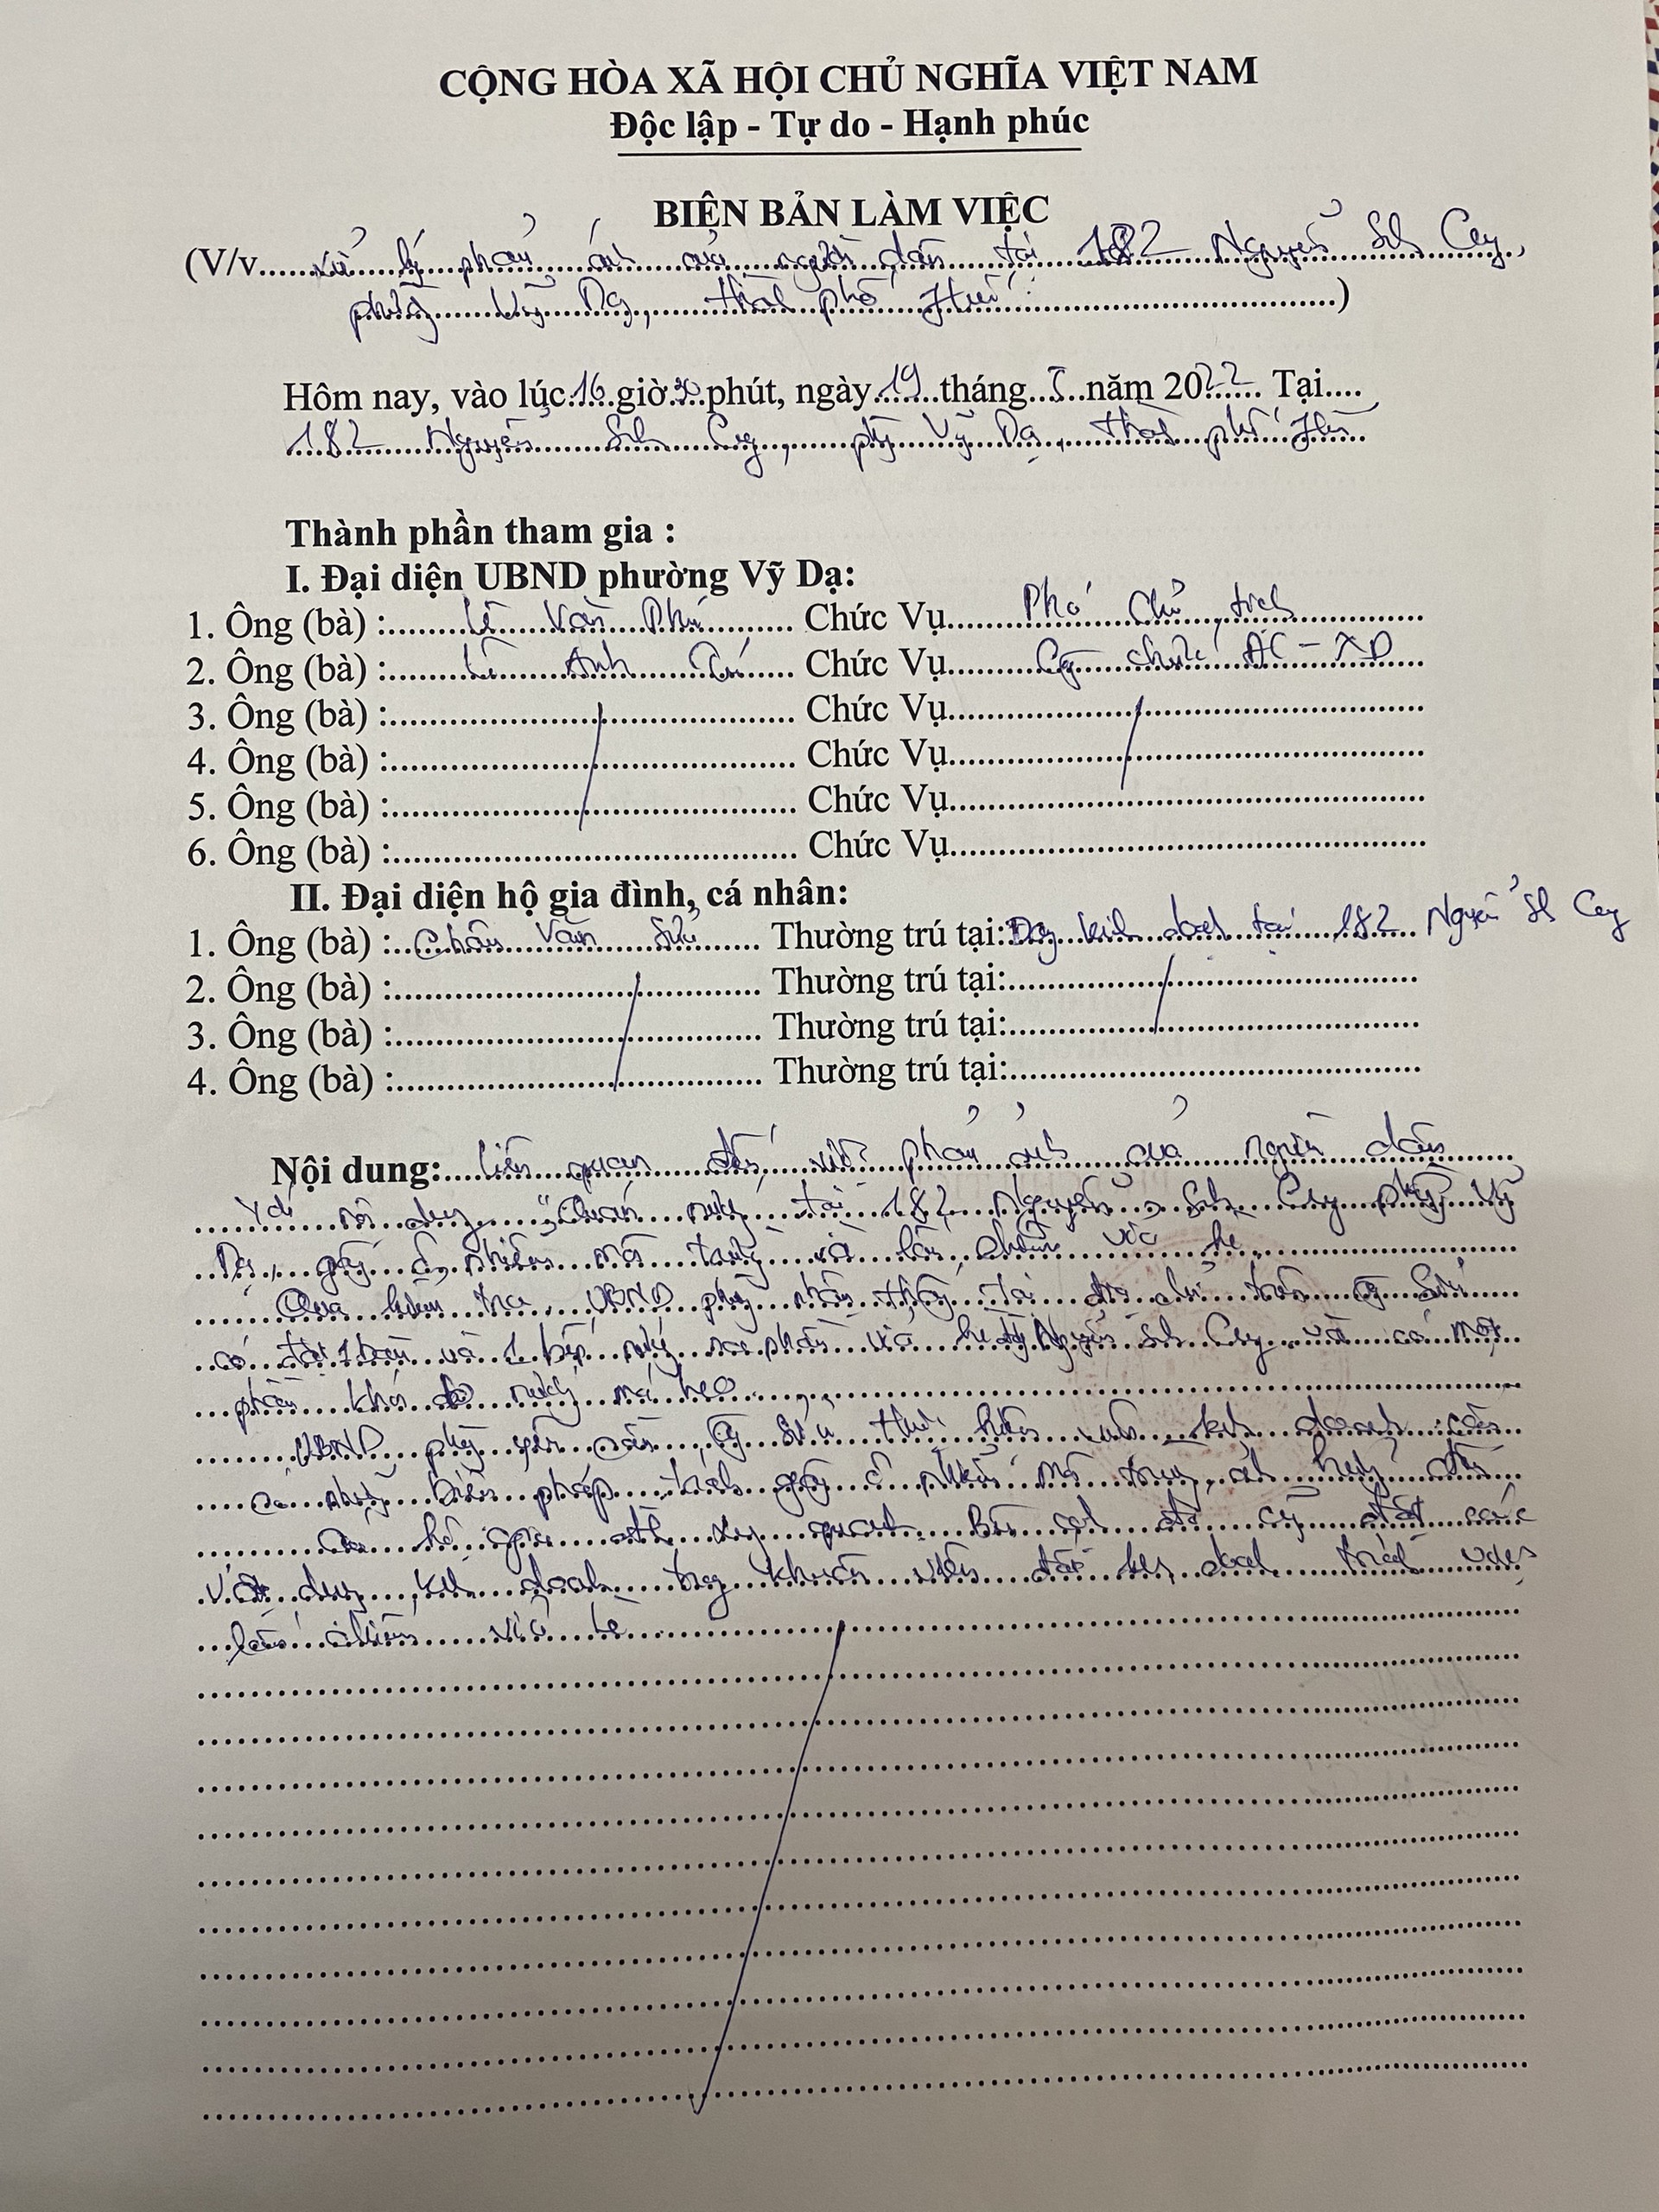 CỘNG HÒA XÃ HỘI CHỦ NGHĨA VIỆT NAM
Độc lập - Tự do - Hạnh phúc
BIÊN BẢN LÀM VIỆC
(V/v xử lý phản ánh của người dân tại 182 Nguyễn Sinh Cung,
phường Vỹ Dạ, thành phố Huế.)
Hôm nay, vào lúc 16 giờ 30 phút, ngày 19 tháng 5 năm 2022 Tại
182 Nguyễn Sinh Cung, phường Vỹ Dạ, thành phố Huế
Thành phần tham gia :
I. Đại diện UBND phường Vỹ Dạ:
1. Ông (bà) : Lê Văn Phú Chức Vụ Phó Chủ tịch
2. Ông (bà) : Lê Anh Chức Vụ Công chức ĐC - XD
3. Ông (bà) : Chức Vụ
4. Ông (bà) : Chức Vụ
5. Ông (bà) : Chức Vụ
6. Ông (bà) : Chức Vụ
II. Đại diện hộ gia đình, cá nhân:
1. Ông (bà) : Châu Văn Sửu Thường trú tại: Đang kinh doanh tại 182 Nguyễn Sinh Cung
2. Ông (bà) : Thường trú tại:
3. Ông (bà) : Thường trú tại:
4. Ông (bà) : Thường trú tại:
Nội dung: liên quan đến việc phản ánh của người dân
Với nội dung "Quán nướng tại 182 Nguyễn Sinh Cung phường Vỹ
Dạ, gây ô nhiễm môi trường và lấn chiếm vỉa hè
Qua kiểm tra, UBND phường nhận thấy tại địa chỉ trên ông Sửu
có đặt 1 bàn và 1 bếp nướng phần vỉa hè đường Nguyễn Sinh Cung và có một
phần khói do nướng
UBND phường yêu cầu ông Sửu thực hiện việc kinh doanh cần
có những biện pháp tránh gây ô nhiễm môi trường, ảnh hưởng đến
các hộ gia đình xung quanh. Bên cạnh đó cũng đặt các
vật dụng kinh doanh trong khuôn viên đất kinh doanh tránh việc
lấn chiếm vỉa hè